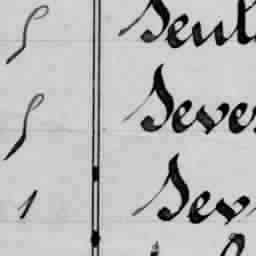 S Seul
S Seve
1 Sev